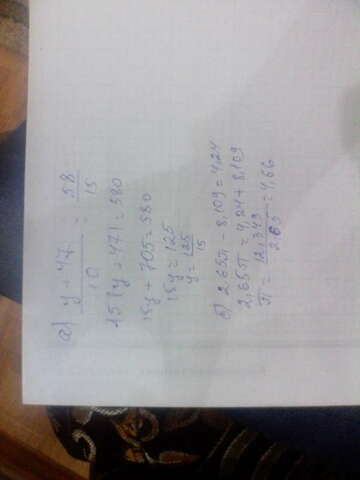 а) (y + 47)/10 = 58/15
15(y + 47) = 580
15y + 705 = 580
15y = 125
y = 125/15
б) 2.65π - 8,109 = 4,24
2,65π = 4,24 + 8,109
π = 12,349/2.65 = 4,66